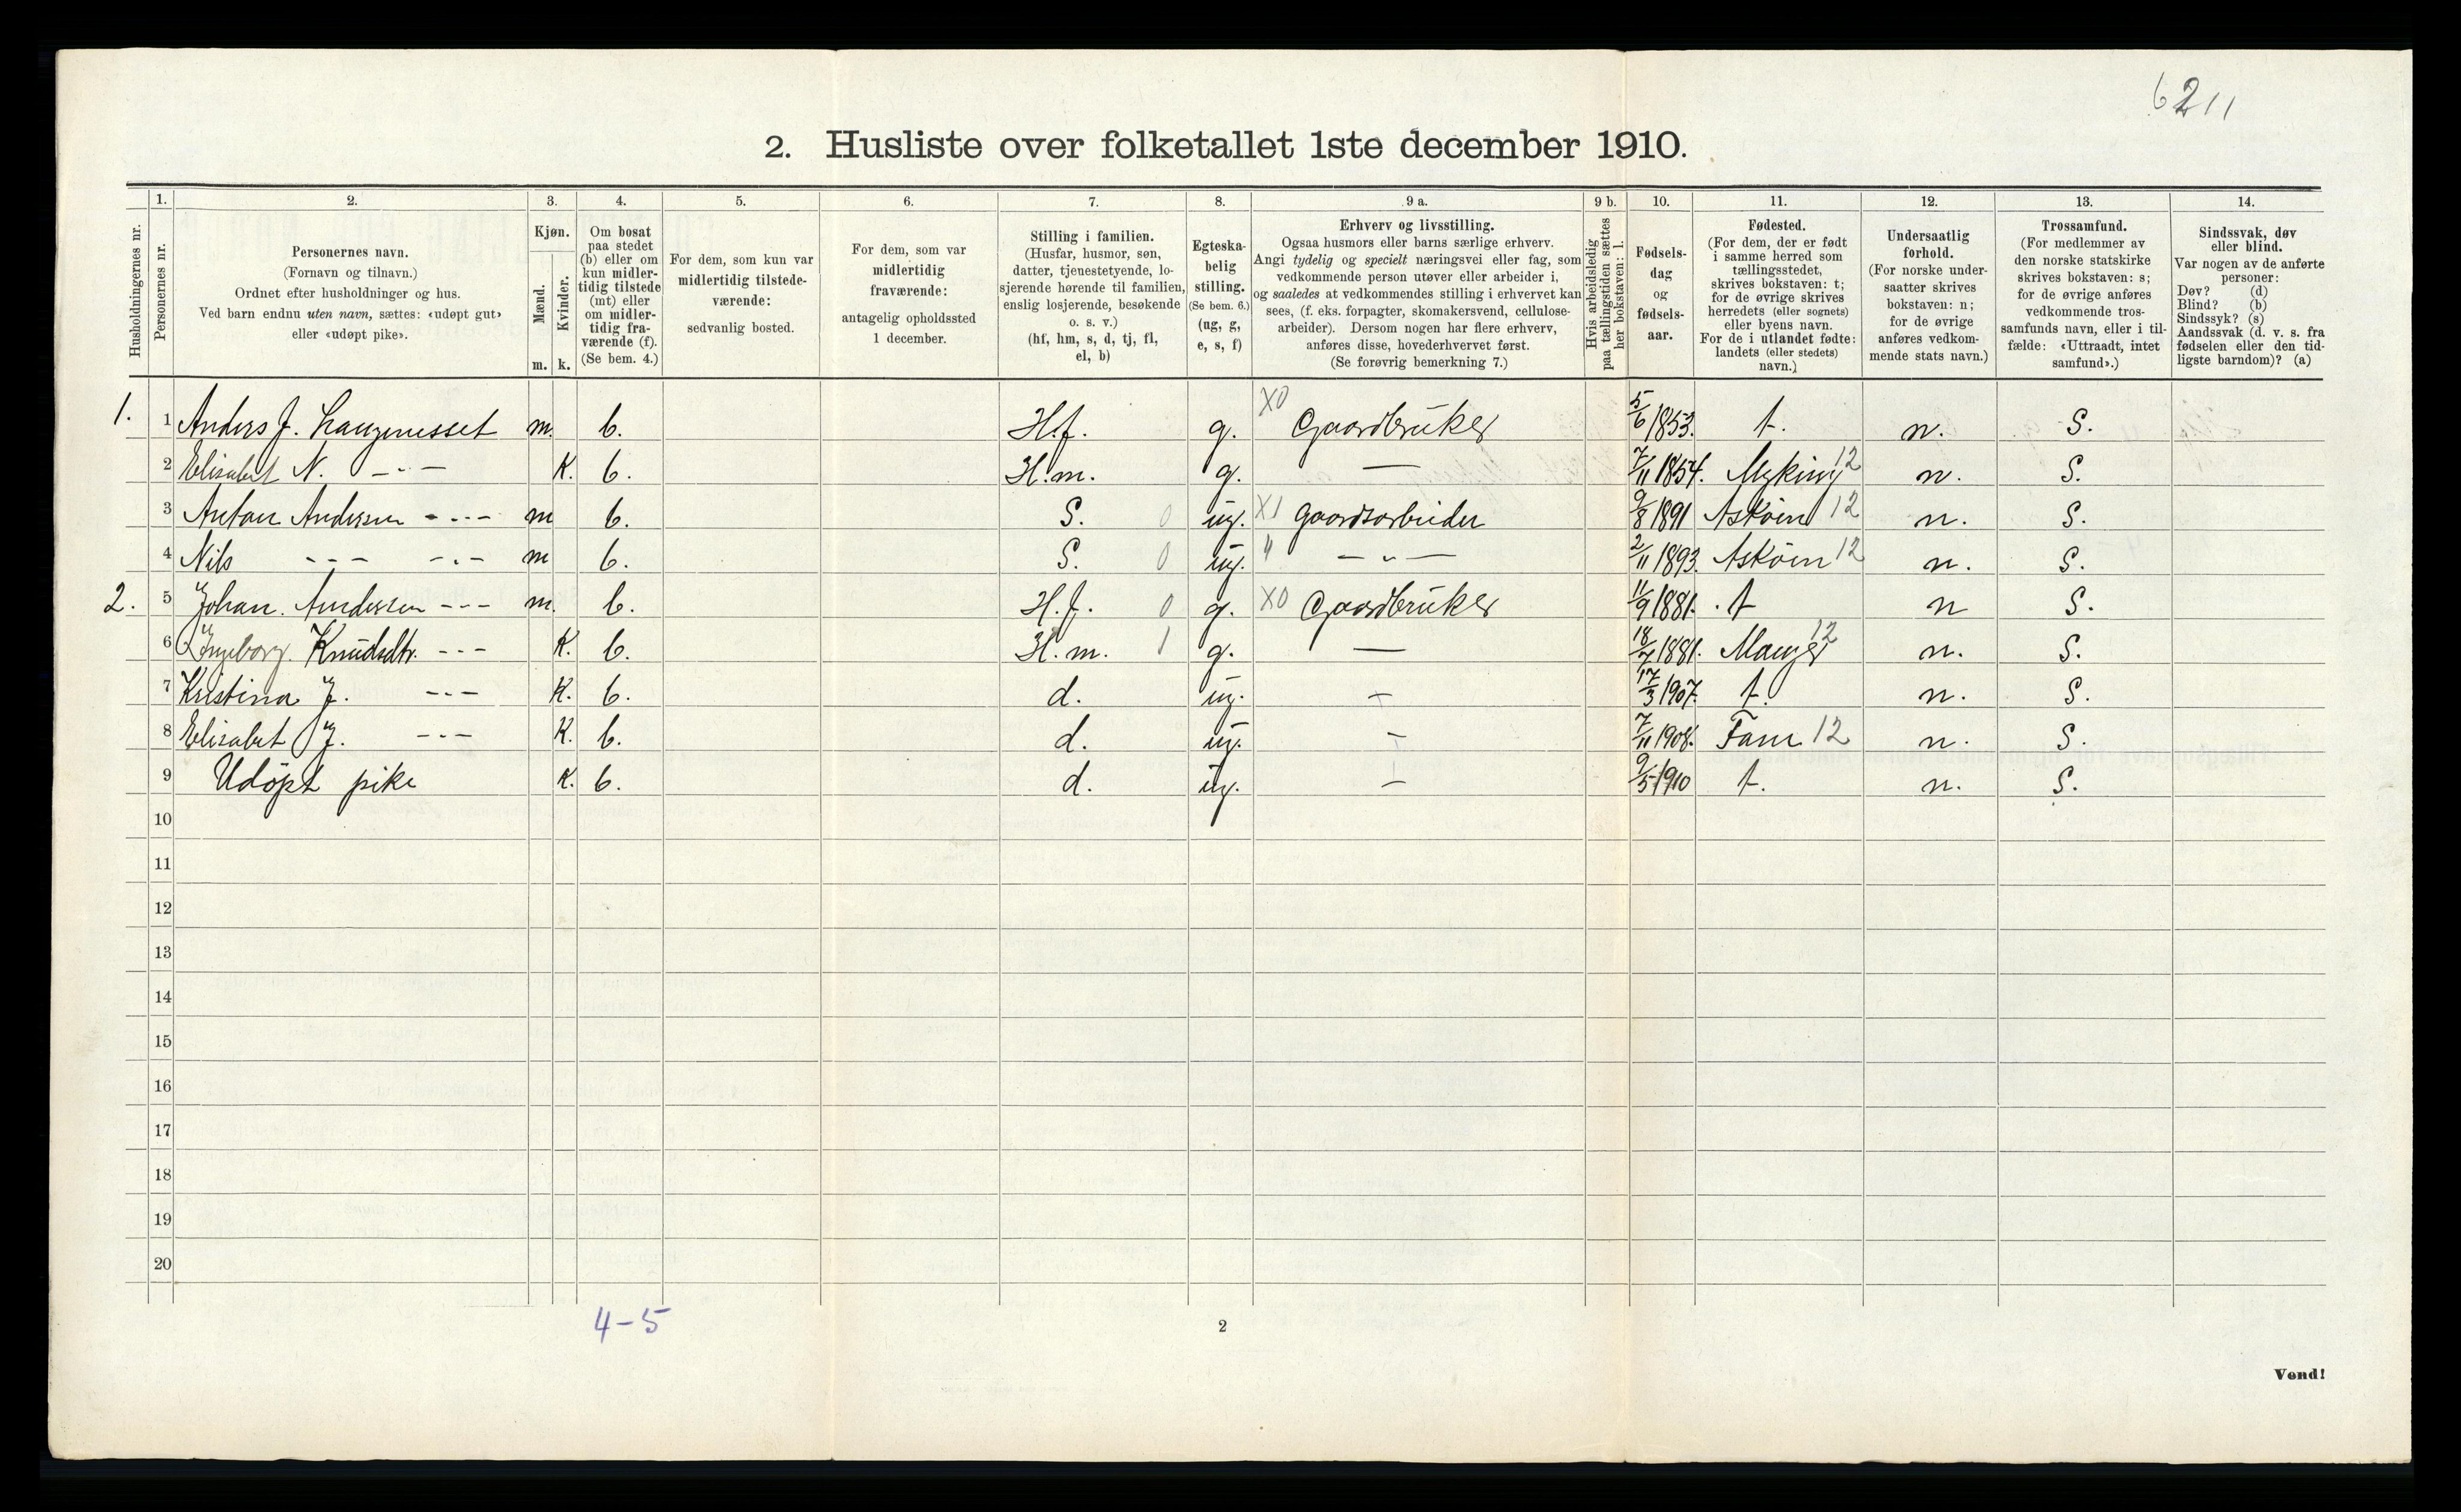 6211
2. Husliste over folketallet 1ste december 1910.
Husholdningernes nr.
1. Personernes nr.
2. Personernes navn.
(Fornavn og tilnavn.)
Ordnet efter husholdninger og hus.
Ved barn endnu uten navn, sættes: «udøpt gut»
eller «udøpt pike».
3. Kjøn.
Mænd. m.
Kvinder. k.
4. Om bosat
paa stedet
(b) eller om
kun midler-
tidig tilstede
(mt) eller
om midler-
tidig fra-
værende (f).
(Se bem. 4.)
5. For dem, som kun var
midlertidig tilstede-
værende:
sedvanlig bosted.
6. For dem, som var
midlertidig
fraværende:
antagelig opholdssted
1 december.
7. Stilling i familien.
(Husfar, husmor, søn,
datter, tjenestetyende, lo-
sjerende hørende til familien,
enslig losjerende, besøkende
o. s. v.)
(hf, hm, s, d, tj, fl,
el, b)
8. Egteska-
belig
stilling.
(Se bem. 6.)
(ug, g,
e, s, f)
9 a. Erhverv og livsstilling.
Ogsaa husmors eller barns særlige erhverv.
Angi tydelig og specielt næringsvei eller fag, som
vedkommende person utøver eller arbeider i,
og saaledes at vedkommendes stilling i erhvervet kan
sees, (f. eks. forpagter, skomakersvend, cellulose-
arbeider). Dersom nogen har flere erhverv,
anføres disse, hovederhvervet først.
(Se forøvrig bemerkning 7.)
9 b. Hvis arbeidsledig
paa tællingstiden sættes
her bokstaven: l.
10. Fødsels-
dag
og
fødsels-
aar.
11. Fødested.
(For dem, der er født
i samme herred som
tællingsstedet,
skrives bokstaven: t;
for de øvrige skrives
herredets (eller sognets)
eller byens navn.
For de i utlandet fødte:
landets (eller stedets)
navn.)
12. Undersaatlig
forhold.
(For norske under-
saatter skrives
bokstaven: n;
for de øvrige
anføres vedkom-
mende stats navn.)
13. Trossamfund.
(For medlemmer av
den norske statskirke
skrives bokstaven: s;
for de øvrige anføres
vedkommende tros-
samfunds navn, eller i til-
fælde: «Uttraadt, intet
samfund».)
14. Sindssvak, døv
eller blind.
Var nogen av de anførte
personer:
Døv? (d)
Blind? (b)
Sindssyk? (s)
Aandssvak (d. v. s. fra
fødselen eller den tid-
ligste barndom)? (a)
1. 1 Anders J. Langenesset m. b. H.f. g. X0 Gaardbruker 5/6 1853. t. n. S.
2 Elisabet N. -"- K. b. H.m. g. — 7/11 1854. Myking 12 n. S.
3 Anton Andersen -"- m b. S. 0 ug. X1 gaardsarbeider 9/8 1891 Askøen 12 n. S.
4 Nils -"- -"- m b. S. 0 ug. " -"- 2/11 1893. Askøen 12 n. S.
2. 5 Johan. Andersen -"- m. b. H.f. 0 g. X0 Gaardbruker 11/9 1881. t n S.
6 Ingeborg Knudsdtr. -"- K. b. H.m. 1 g. — 18/7 1881. Manger 12 n. S.
7 Kristina J. -"- K. b. d. ug. - 17/3 1907. t. n. S.
8 Elisabet J. -"- K. b. d. ug. - 7/11 1908. Fane 12 n. S.
9 Udöpt pike K. b. d. ug. - 9/5 1910 t. n. S.
10
11
12
13
14
15
16
17
18
19
20
4-5
2
Vend!